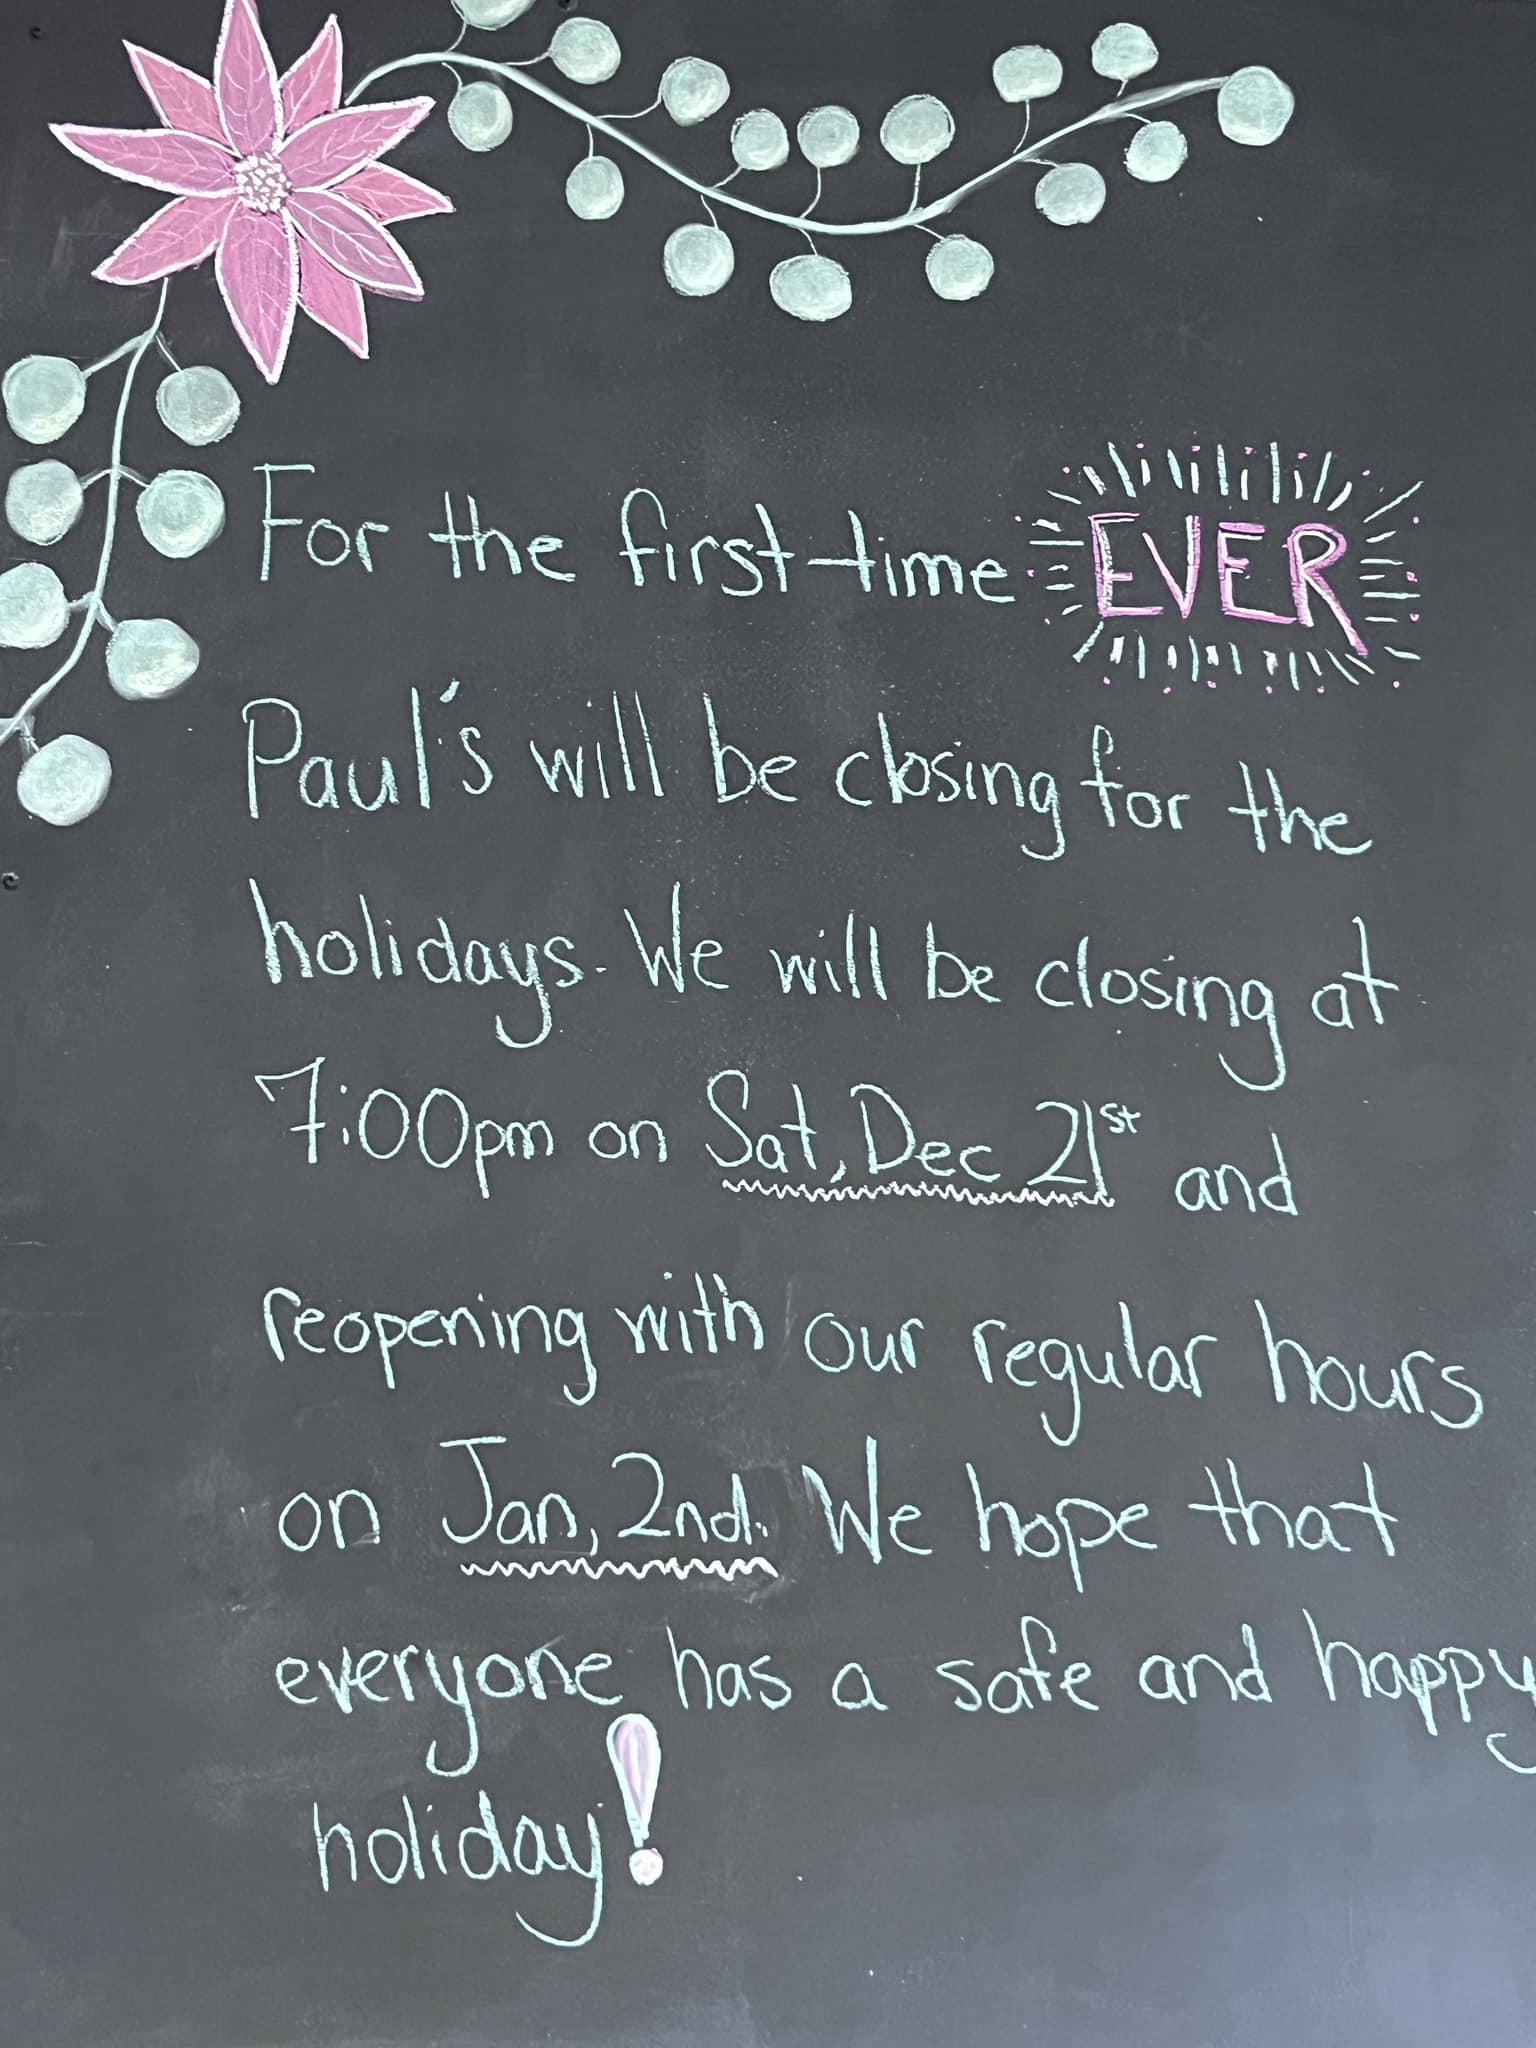 For the first-time EVER
Paul's will be closing for the
holidays. We will be closing at
7:00pm on Sat, Dec 21st and
reopening with our regular hours
on Jan, 2nd. We hope that
everyone has a safe and happy
holiday!